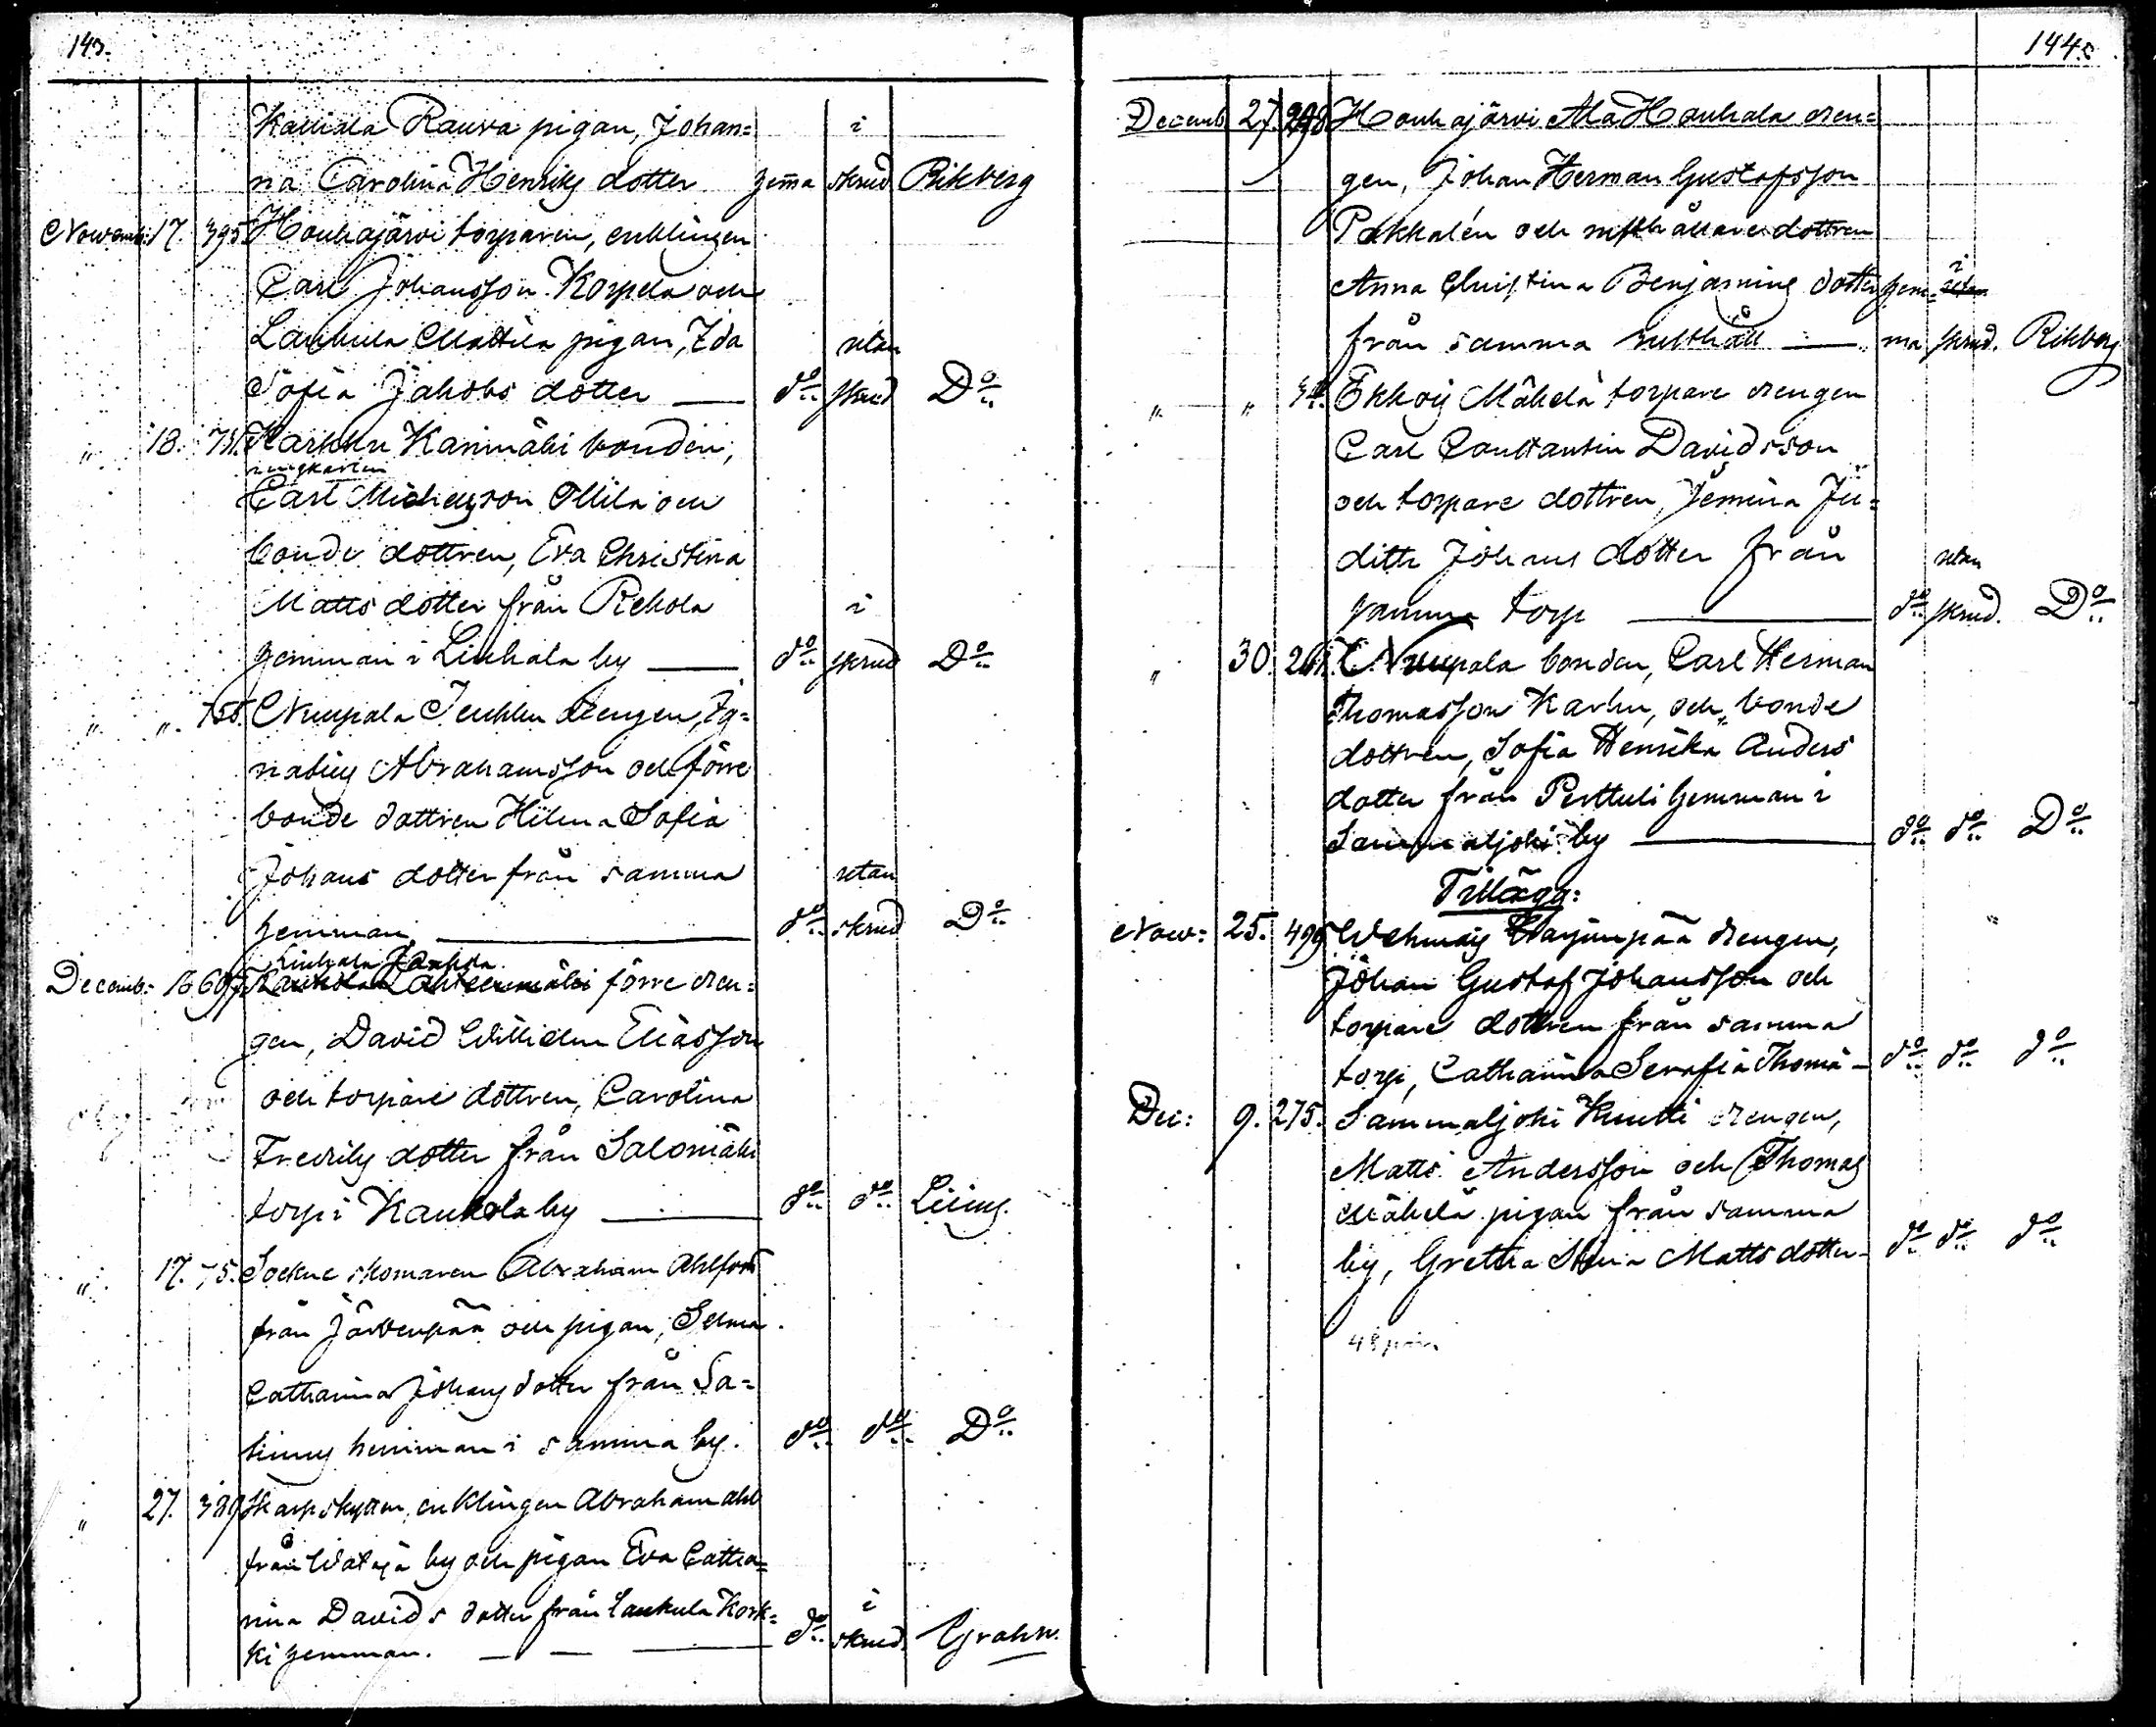 143.
Kauiala Rauva pigan, Johan= i
na Carolina Henriks dotter hema skrud Rikberg
Novemb: 17. 395 Houhajärvi torparen, enklingen
Carl Johansson Korpela och
Laukula Mattila pigan, Ida utan
Sofia Jakobs dotter — do skrud Do
" 18. 751. Karkku Kanimäki bonden,
ringkarlen
Carl Michelsson Ollila och
bonde dottren, Eva Christina
Matts dotter från Rekola i
hemman i Liuhala by — do skrud Do
" " 755. Nuupala Jeukku drengen, Ig=
natius Abrahamsson och förre
bonde dottren Hilma Sofia
Johans dotter från samma utan
hemman — do skrud Do
Liuhala Jaakola
Decemb: 16 607 förre dren=
gen, David Wilhelm Eliasson
och torpare dottren, Carolina
Fredriks dotter från Salomäki
torp i Kaukola by — do do Lilius.
" 17. 75. Sockne skomaren Abraham Ahlfors
från Järvenpää och pigan, Selma
Catharina Johans dotter från Sa=
hemman i samma by. do do Do
" 27. 389 Skarpskytten, enklingen Abraham Ahl
från Wataja by och pigan Eva Catha=
rina Davids dotter från Laukula Kork= i
ki hemman. — — — do skrud. Grahn.
144.
Decemb 27. 298 Houhajärvi Ala Houhala dren=
gen, Johan Herman Gustafsson
Pakkalén och rusthållare dottren
Anna Christina Benjamins dotter hem= i
från samma rusthåll — ma skrud. Rikberg
" " Ekkois Mäkelä torpare drengen
Carl Constantin Davidsson
och torpare dottren, Jemina Ju=
dith Johans dotter från utan
samma torp — do skrud. Do
" 30. 261. Nuupala bonden, Carl Herman
Thomasson Karhu, och bonde
dottren, Sofia Henrika Anders
dotter från Perttuli hemman i
Sammaljoki by — do do Do
Tillägg:
Nov: 25. 499 Wehmais Harjunpää drengen,
Johan Gustaf Johansson och
torpare dottren från samma
torp, Catharina Serafia Thomä — do do do
Dec: 9. 275. Sammaljoki Knutti drengen,
Matts Andersson och Thomas
Mäkelä pigan från samma
by, Gretha Stina Matts dotter — do do do
48 par